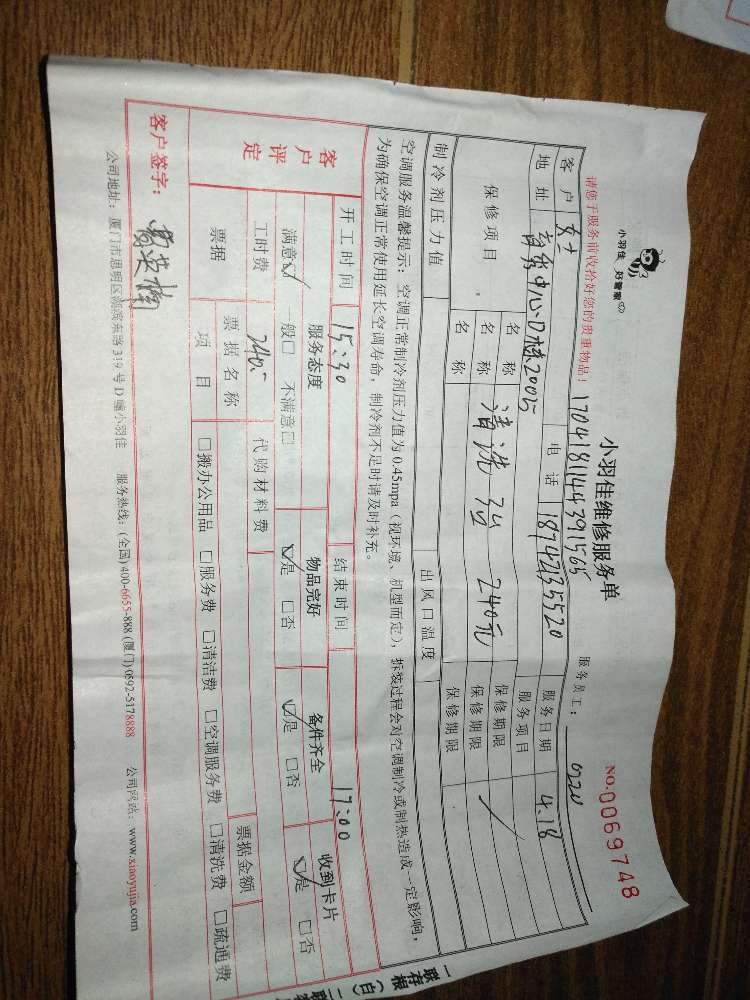 小羽佳 好管家
小羽佳维修服务单
NO.0069748
请您于服务前收拾好您的贵重物品！
170418144391565
服务员工：
客户
电话 18742135520
服务日期 4.18
地址
中心D栋2005
服务项目
保修项目
名称
保修期限
名称 清洗 240元
保修期限
名称
保修期限
制冷剂压力值
出风口温度
空调服务温馨提示：空调正常制冷剂压力值为0.45mpa（视环境、机型而定），拆装过程会对空调制冷或制热造成一定影响，
为确保空调正常使用延长空调寿命，制冷剂不足时请及时补充。
客户评定
开工时间 15:30 结束时间 17:00
服务态度 物品完好 备件齐全 收到卡片
满意☑ 一般□ 不满意□ ☑是 □否 ☑是 □否 ☑是 □否
工时费 240.- 代购材料费
票据
票据名称
票据金额
项目 □搬办公用品 □服务费 □清洁费 □空调服务费 □清洗费 □疏通费
客户签字：
公司地址：厦门市思明区湖滨东路319号D幢小羽佳 服务热线：(全国)400-6655-888 (厦门)0592-5178888 公司网站：www.xiaoyujia.com
一联存根（白）二联客